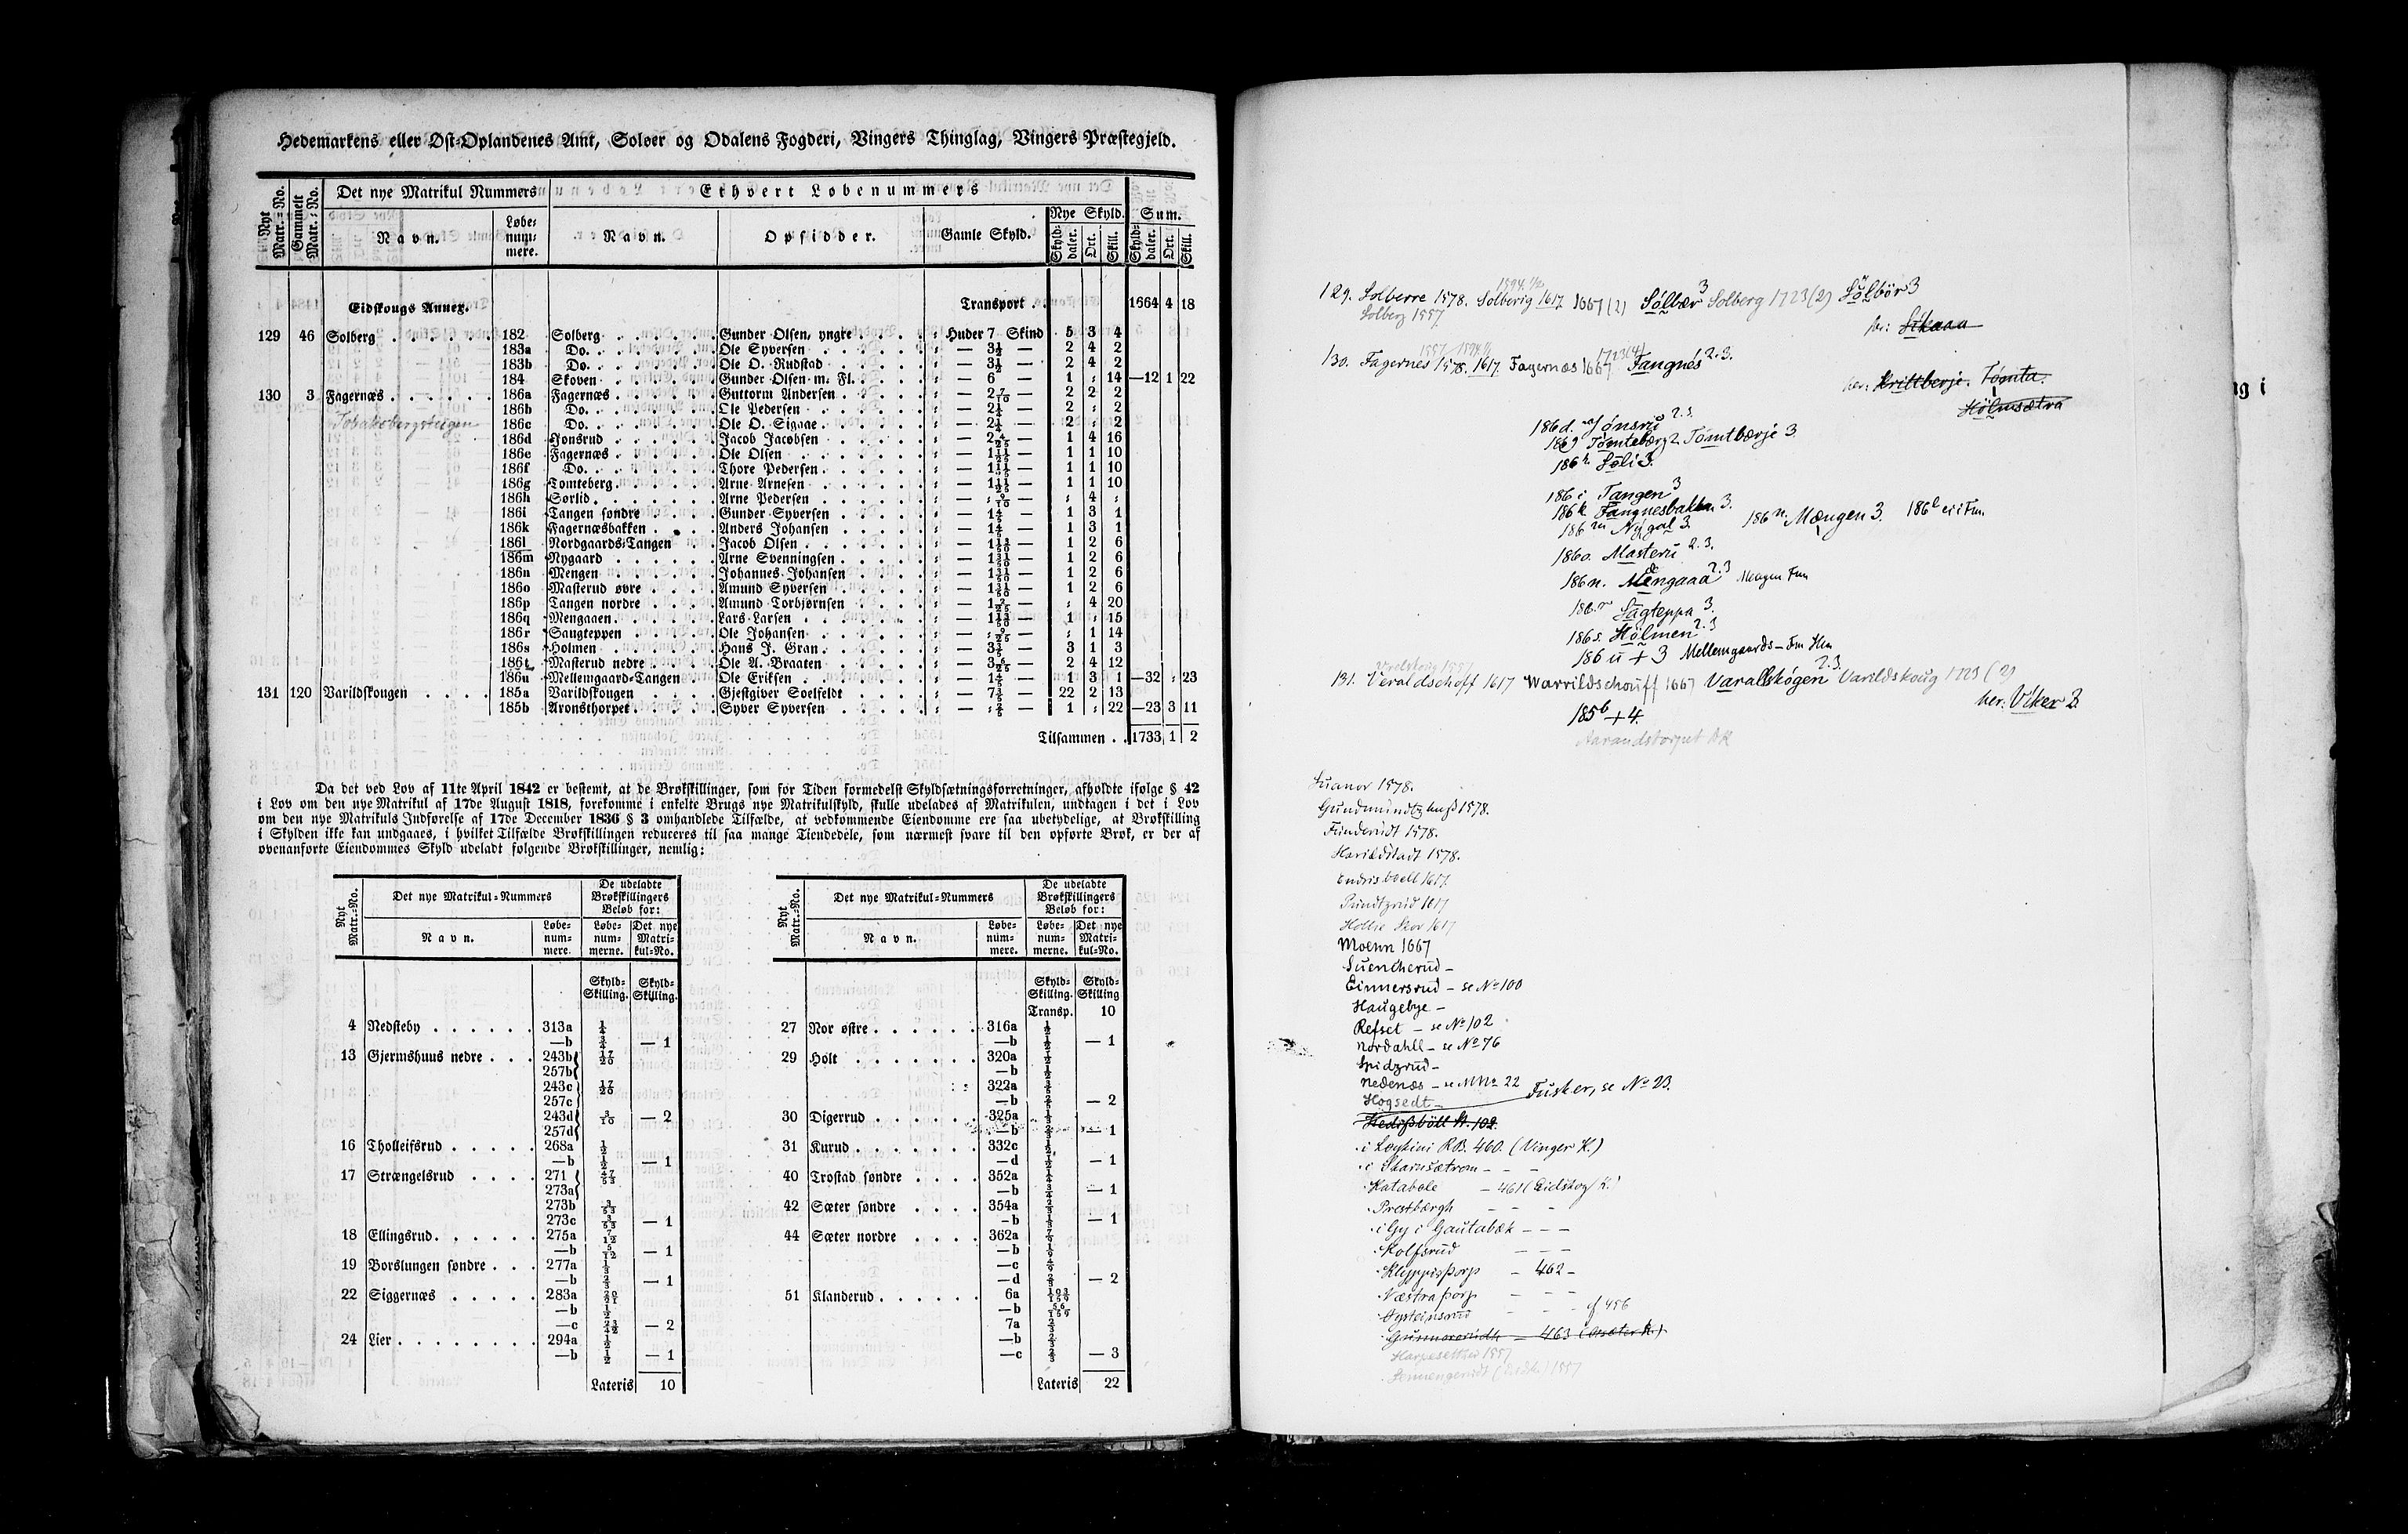 Hedemarkens eller Øst-Oplandenes Amt, Soløer og Odalens Fogderi, Vingers Thinglag, Vingers Præstegjeld.
Nyt Matr.-No. Gammelt Matr.-No. Det nye Matrikul Nummers Ethvert Løbenummers
Navn. Løbe-num-mere. Navn. Opsidder. Gamle Skyld. Nye Skyld. Sum.
Skyld-daler. Ort. Skill. Skyld-daler. Ort. Skill.
Eidskougs Annex. Transport . . 1664 4 18
129 46 Solberg 182 Solberg Gunder Olsen, yngre Huder 7 Skind 5 3 4
183a Do. Ole Syversen — 3½ — 2 4 2
183b Do. Ole O. Rudstad — 3½ — 2 4 2
184 Skoven Gunder Olsen m. Fl. — 6 — 1 : 14 —12 1 22
130 3 Fagernæs 186a Fagernæs Guttorm Andersen : — 2 7/10 — 2 2 2
186b Do. Ole Pedersen : — 2¼ — 2 : 2
186c Do. Ole O. Sigaae : — 2¼ — 2 : 2
186d Jonsrud Jacob Jacobsen : — 2 4/25 — 1 4 16
186e Fagernæs Ole Olsen : — 1 11/25 — 1 1 10
186f Do. Thore Pedersen : — 1 11/25 — 1 1 10
186g Tomteberg Arne Arnesen : — 1 11/25 — 1 1 10
186h Sorlid Arne Pedersen : — : 9/10 — : 4 :
186i Tangen søndre Gunder Syversen : — 1 4/5 — 1 3 1
186k Fagernæsbakken Anders Johansen : — 1 4/5 — 1 3 1
186l Nordgaards-Tangen Jacob Olsen : — 1 13/50 — 1 2 6
186m Nygaard Arne Svenningsen : — 1 31/50 — 1 2 6
186n Mengen Johannes Johansen : — 1 31/50 — 1 2 6
186o Masterud øvre Amund Syversen : — 1 31/50 — 1 2 6
186p Tangen nordre Amund Torbjørnsen : — 1 2/25 — : 4 20
186q Mengaaen Lars Larsen : — 1 13/50 — 1 : 15
186r Saugteppen Ole Johansen : — : 9/25 — : 1 14
186s Holmen Hans J. Gran : — 3 3/5 — 3 1 3
186t Masterud nedre Ole A. Braaten : — 3 6/25 — 2 4 12
186u Mellemgaard-Tangen Ole Eriksen : — 1 4/5 — 1 3 1 —32 : 23
131 120 Varildskougen 185a Varildskougen Gjestgiver Soelfeldt : — 7 3/5 — 22 2 13
185b Aronsthorpet Syver Syversen : — : 2/5 — 1 : 22 —23 3 11
Tilsammen . . 1733 1 2
Da det ved Lov af 11te April 1842 er bestemt, at de Brøkskillinger, som for Tiden formedelst Skyldsætningsforretninger, afholdte ifølge § 42
i Lov om den nye Matrikul af 17de August 1818, forekomme i enkelte Brugs nye Matrikulskyld, skulle udelades af Matrikulen, undtagen i det i Lov
om den nye Matrikuls Indførelse af 17de December 1836 § 3 omhandlede Tilfælde, at vedkommende Eiendomme ere saa ubetydelige, at Brøkskilling
i Skylden ikke kan undgaaes, i hvilket Tilfælde Brøkskillingen reduceres til saa mange Tiendedele, som nærmest svare til den opførte Brøk, er der af
ovenanførte Eiendommes Skyld udeladt følgende Brøkskillinger, nemlig:
Nyt Matr.-No. Det nye Matrikul-Nummers De udeladte Brøkskillingers Beløb for:
Navn. Løbe-num-mere. Løbe-num-merne. Det nye Matri-kul-No.
Skyld-Skilling. Skyld-Skilling.
4 Nedsteby 313a ¼
—b ¾ — 1
13 Gjermshuus nedre 243b 17/20
257b
243c 17/20
257c
243d 3/10 — 2
257d
16 Tholleifsrud 268a ½
—b ½ — 1
17 Strængelsrud 271 47/53
273a
273b 3/53
273c 3/53 — 1
18 Ellingsrud 275a 7/12
—b 5/12 — 1
19 Borslungen søndre 277a ⅓
—b ⅔ — 1
22 Siggernæs 283a
—b ½
—c — 2
24 Lier 294a ½
—b ½ — 1
Lateris 10
Nyt Matr.-No. Det nye Matrikul-Nummers De udeladte Brøkskillingers Beløb for:
Navn. Løbe-num-mere. Løbe-num-merne. Det nye Matri-kul-No.
Skyld-Skilling. Skyld-Skilling
Transp. 10
27 Nor østre 316a ½
—b ½ — 1
29 Holt 320a ½
—b ½
322a ⅗
—b ⅖ — 2
30 Digerrud 325a ⅓
—b ⅔ — 1
31 Kurud 332c ½
—d ½ — 1
40 Trostad søndre 352a ¼
—b ¾ — 1
42 Sæter søndre 354a ⅔
—b ⅓ — 1
44 Sæter nordre 362a 7/9
—b 1/9
—c 4/9
—d ⅔ — 2
51 Klanderud 6a 103/159
—b 56/159
7a ⅔
—b ⅔
—c ⅔ — 3
Lateris 22
129. Solberre 1578. Solberig 1617 1667 (2) Sólbær 3 Solberg 1723 (2) Sölbör 3
1594. 1/2
Solberg 1557
her: Sikaaa
1557 1594
130. Fagernes 1578. 1617. Fagernæs 1667 1723(4) Fangnés 2.3.
her: Krittberje. Tomta.
Holmsætra
186d. Jónsru 2.3.
186g Tomteberg 2 Tomtbærje 3.
186h. Soli 3.
186i Tangen 3
186k. Fangnesbakken 3.
186m Nygal 3. 186n. Mængen 3. 186l ei i Fm.
186o. Masteru 2.3.
186n. Mengaaa 2.3
186r Sagteppa 3.
186s. Hölmen 2.3
186u + 3 Mellemgaards – Fm
131. Veraldschoff 1617 Warrildschouff 1667 Varallskógen 2.3. Varildskoug 1723 (2)
her: Viker 3.
185b + 4.
Aarandstorpet
Suanor 1578.
Gundmundtz huss 1578.
Funderudt 1578.
Harildstadt 1578.
Endrisboell 1617.
Pundtzrud 1617
Hollie Skov 1617
Moenn 1667
Suencherud –
Einnersrud – se No 100
Haugebye –
Refset – se No 102
Nordahll – se No 76
Spidzrud –
Nedenæs – se MNo 22
Hogsedt – Fusker, se No 23.
Hedissböll N. 102.
i Loykini RB. 460. (Vinger K.)
i Skarnsætrom – – –
Katabole – 461 (Eidskog K.)
Prestbærgh – – –
i Gy i Gautabæk – – –
Kolfsrud – – –
Klyppisþorp – 462 –
Næstraþorp – – –
Oysteinsrud – – – cf 456
Gunnorerudh – 463 (Aasæter K.)
Harpesetther 1557